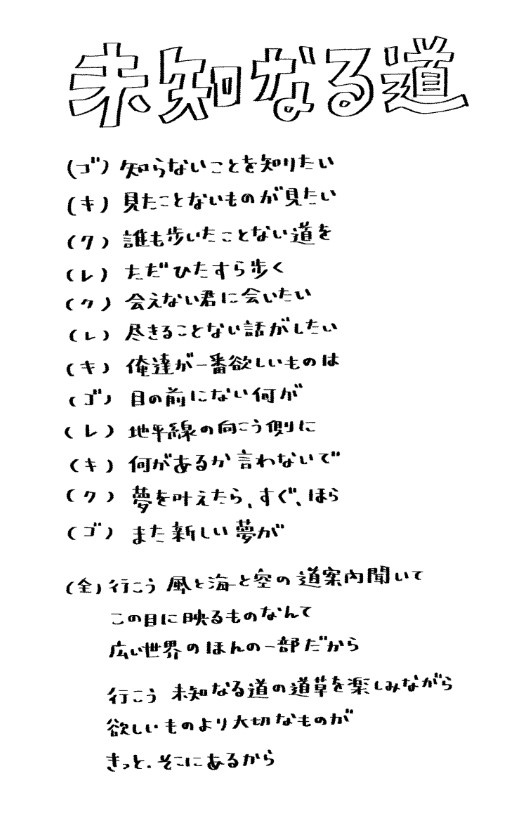 未知なる道
(ゴ) 知らないことを知りたい
(キ) 見たことないものが見たい
(ク) 誰も歩いたことない道を
(レ) ただひたすら歩く
(ク) 会えない君に会いたい
(レ) 尽きることない話がしたい
(キ) 俺達が一番欲しいものは
(ゴ) 目の前にない何が
(レ) 地平線の向こう側に
(キ) 何があるか言わないで
(ク) 夢を叶えたら、すぐ、ほら
(ゴ) また新しい夢が
(全) 行こう 風と海と空の道案内聞いて
この目に映るものなんて
広い世界のほんの一部だから
行こう 未知なる道の道草を楽しみながら
欲しいものより大切なものが
きっと、そこにあるから